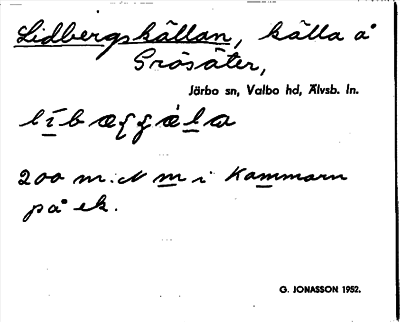 Lidbergskällan, källa å
Gräsäter,
Järbo sn, Valbo hd, Älvsb. ln.
200 m. N m i Kammarn
på ek.
G. JONASSON 1952.